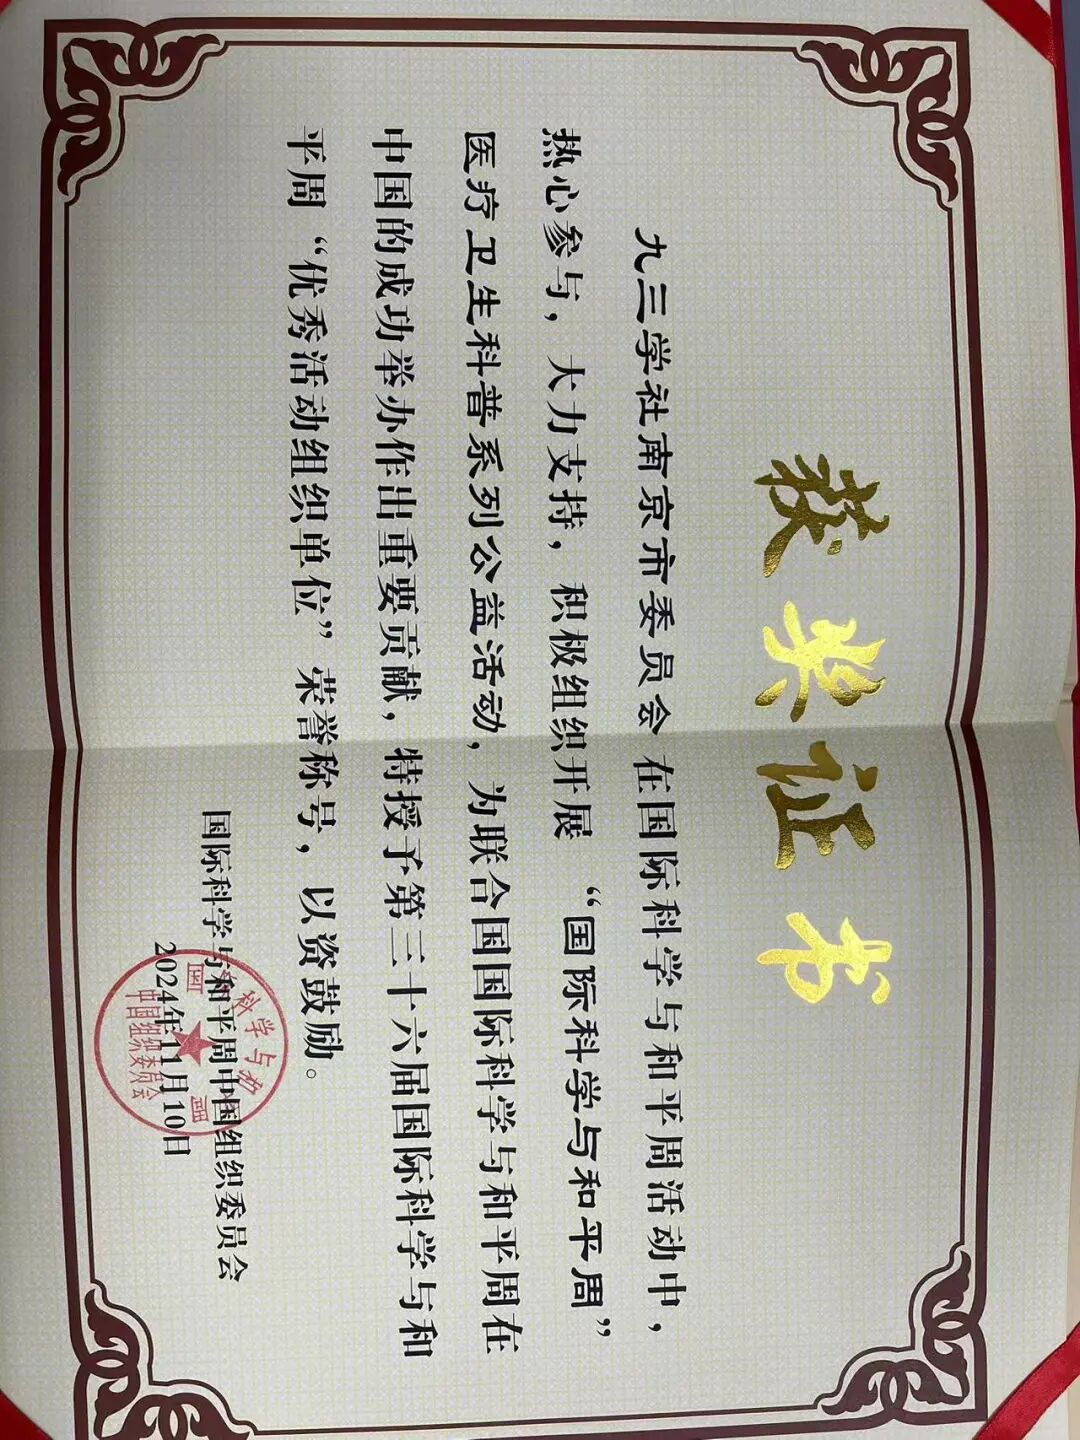 获奖证书
九三学社南京市委员会 在国际科学与和平周活动中，
热心参与，大力支持，积极组织开展 “国际科学与和平周”
医疗卫生科普系列公益活动，为联合国国际科学与和平周在
中国的成功举办作出重要贡献，特授予第三十六届国际科学与和
平周“优秀活动组织单位”荣誉称号，以资鼓励。
国际科学与和平周中国组织委员会
2024年11月10日
科学与和
中国组织委员会